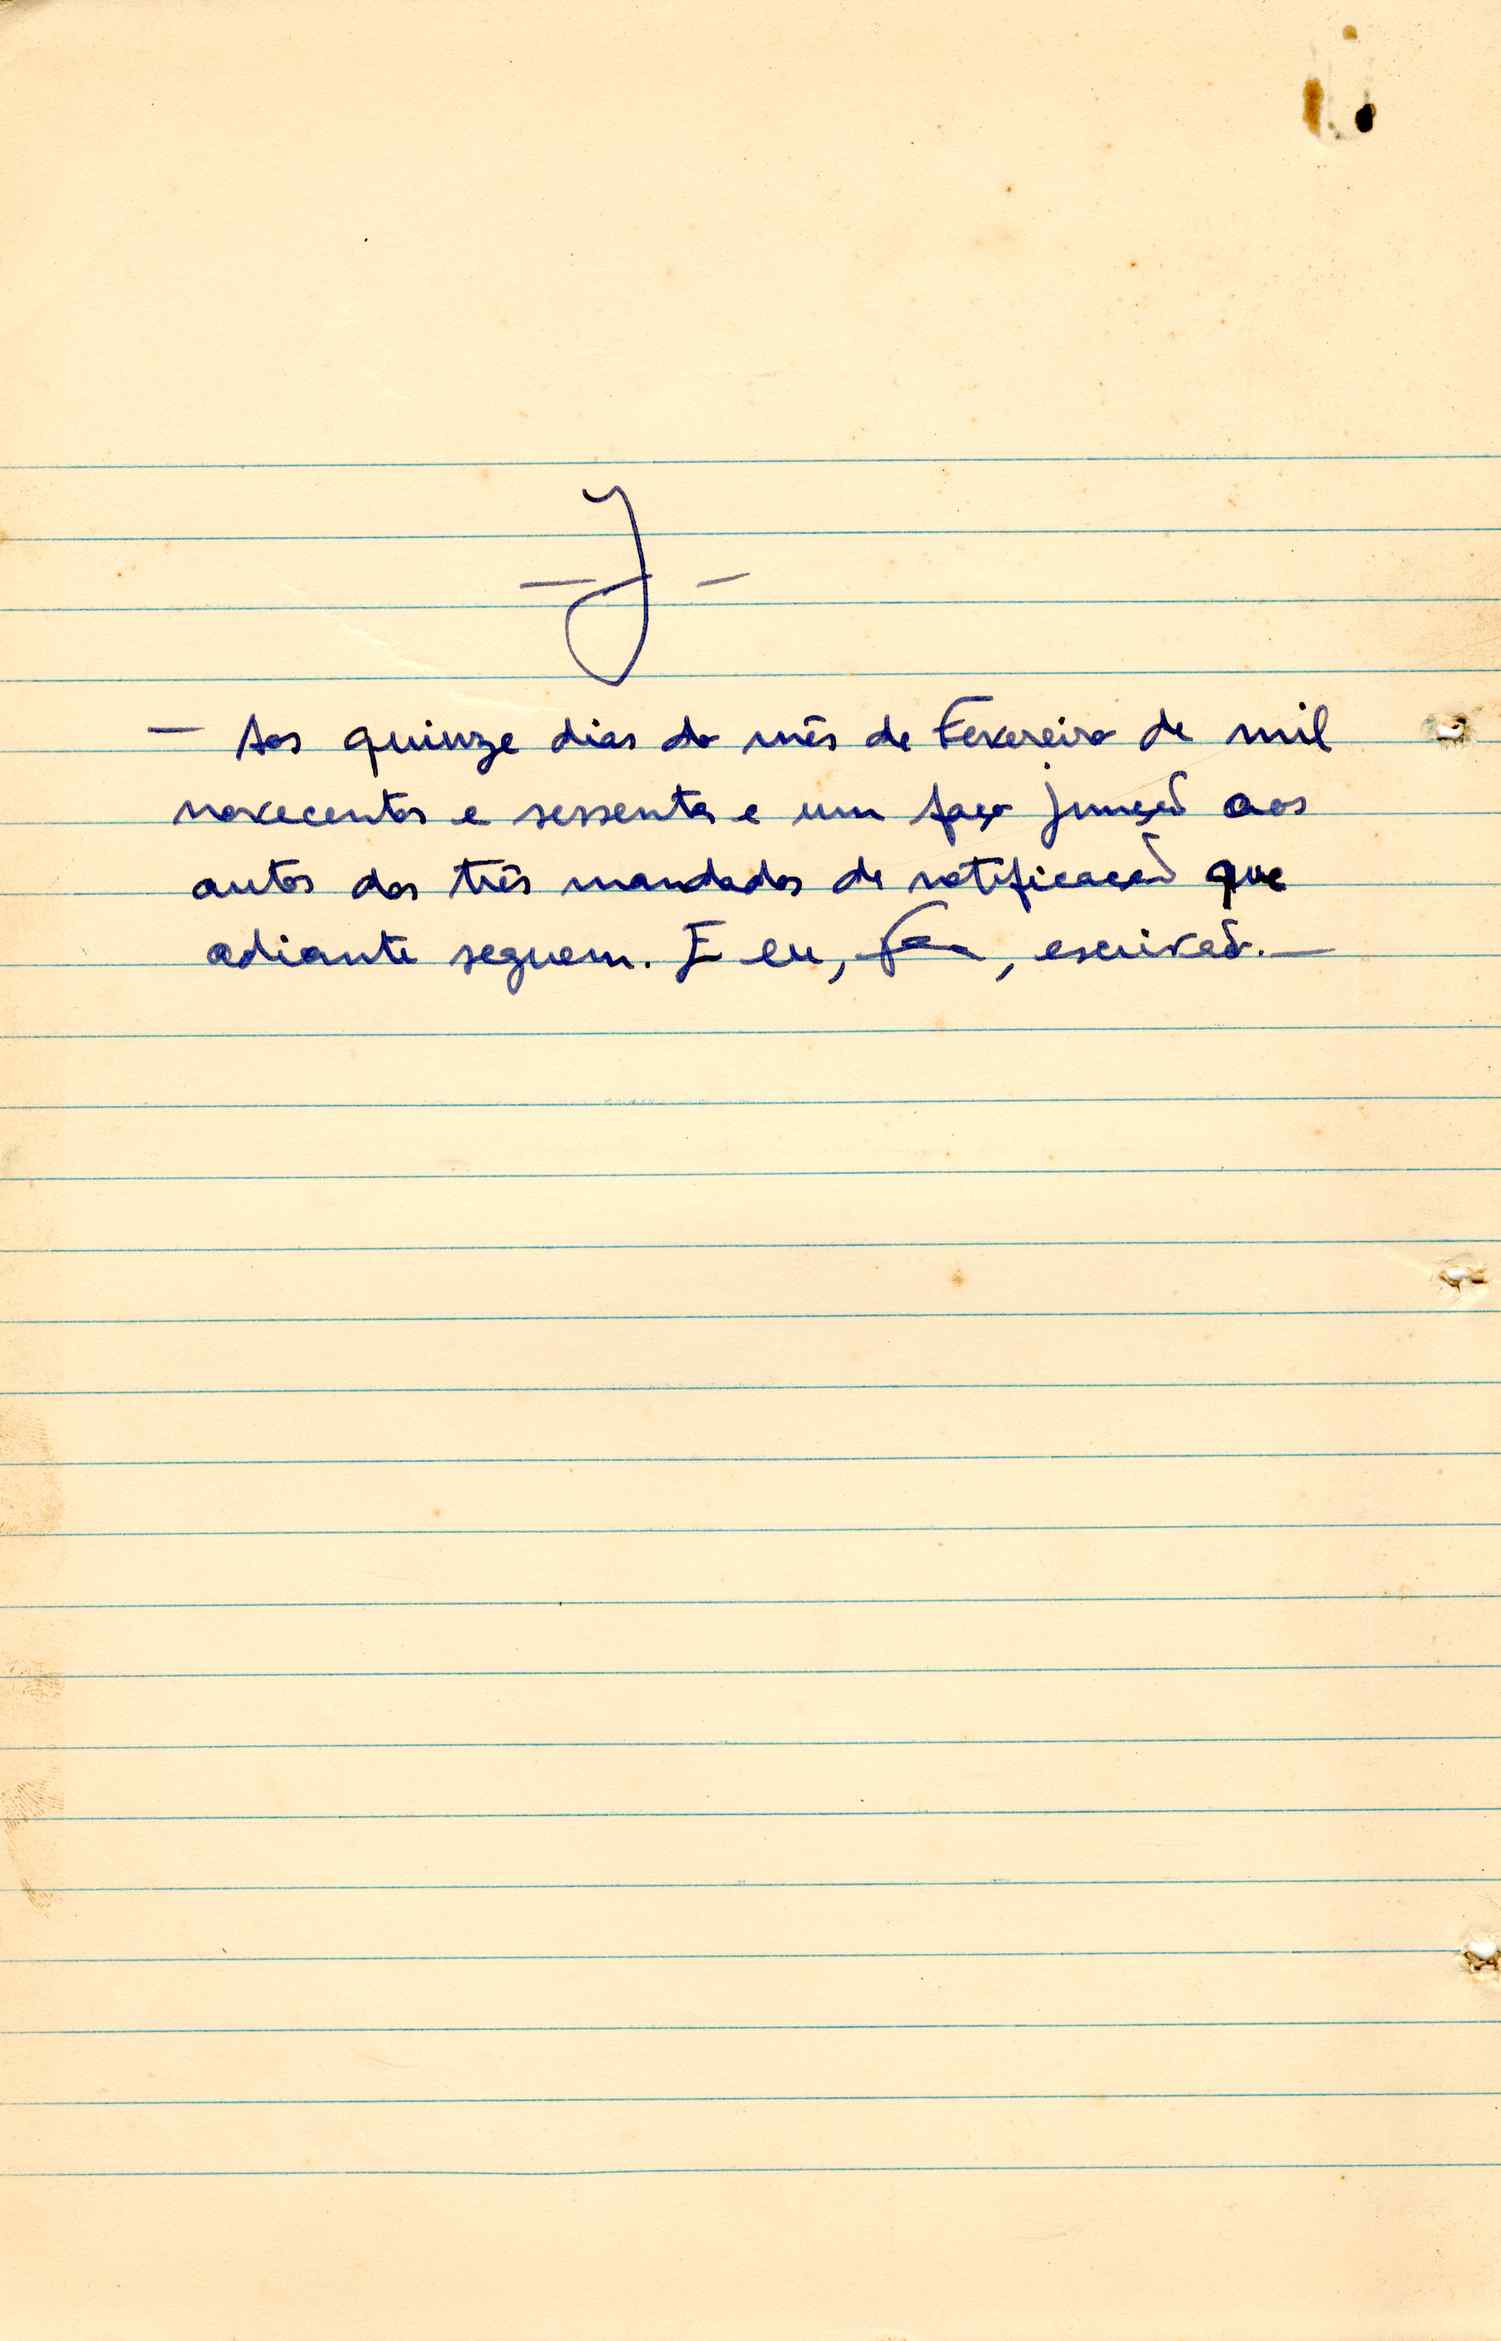 — J —
— Aos quinze dias do mês de Fevereiro de mil
novecentos e sessenta e um faço junção aos
autos dos três mandados de notificação que
adiante seguem. E eu, , escrivão. —